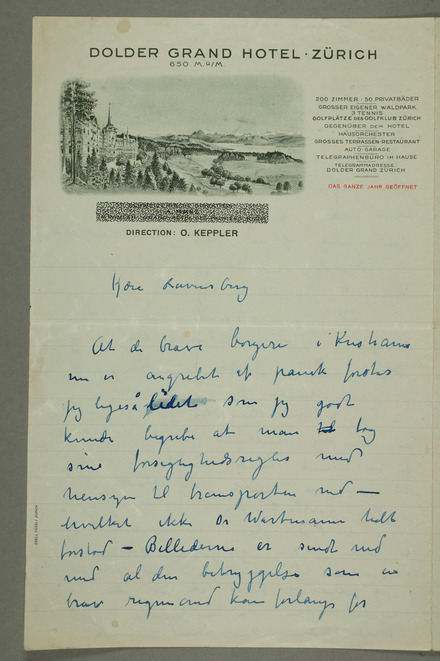 DOLDER GRAND HOTEL · ZÜRICH
650 M.ü/M.
200 ZIMMER · 50 PRIVATBÄDER
GROSSER EIGENER WALDPARK
3 TENNIS
GOLFPLÄTZE DES GOLFKLUB ZÜRICH
GEGENÜBER DEM HOTEL
HAUSORCHESTER
GROSSES TERRASSEN-RESTAURANT
AUTO-GARAGE
TELEGRAPHENBÜRO IM HAUSE
TELEGRAMMADRESSE:
DOLDER GRAND ZÜRICH
DAS GANZE JAHR GEÖFFNET
DIRECTION: O. KEPPLER
Kjære Ravensberg
At de brave borgere i Kristiania
nu er angrebet af panik forstår
jeg ligeså lidet som jeg godt
kunde begribe at man tog
sine forsigtighedsregler med
hensyn til transporten ned –
hvilket ikke Dr Wartmann helt
forstod – Billederne er sendt ned
med al den betryggelse som en
brav mand kan forlange for